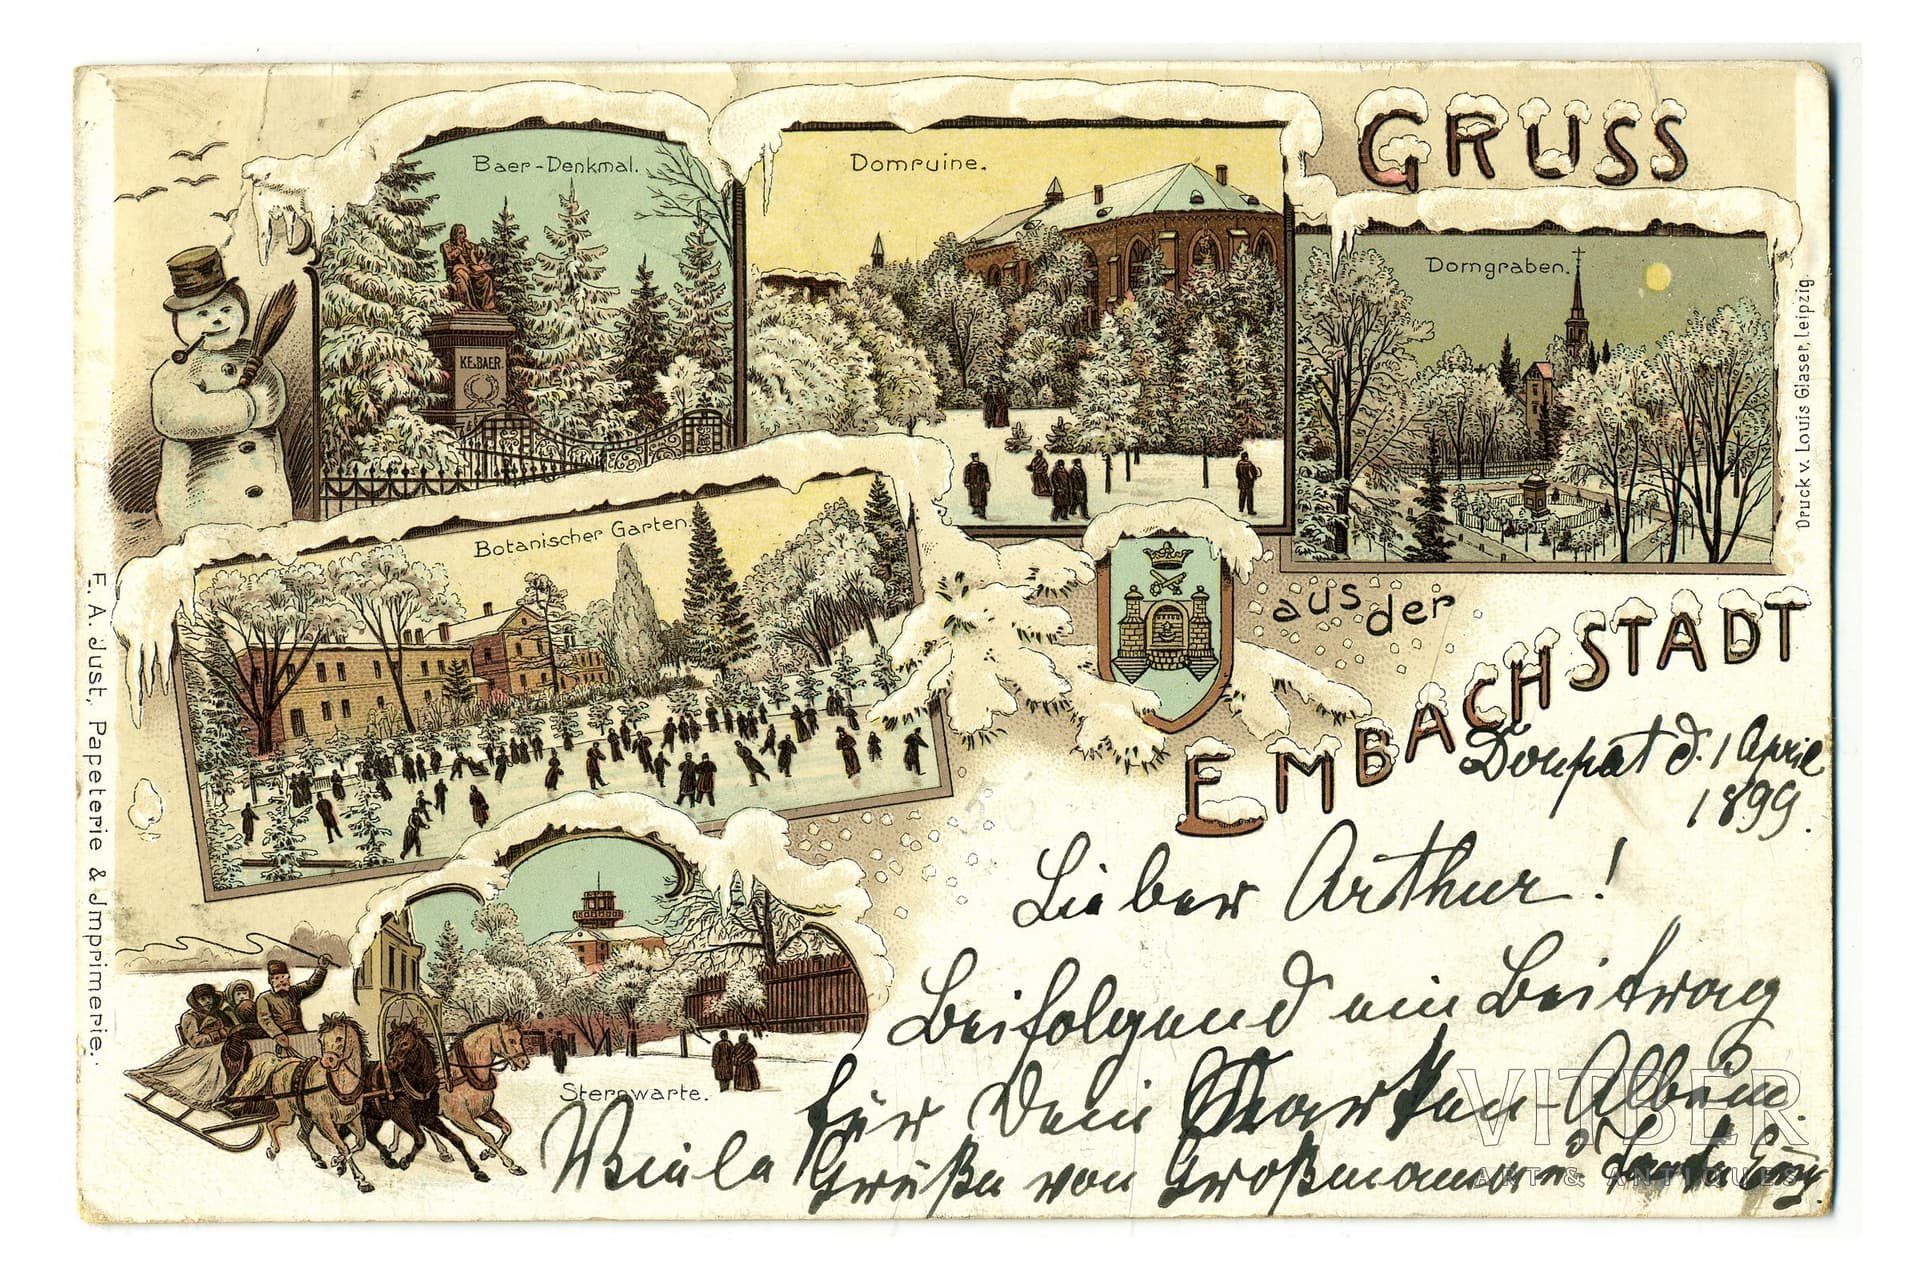 GRUSS
aus der
EMBACHSTADT
Baer-Denkmal.
KEvBAER.
Domruine.
Domgraben.
Botanischer Garten.
Sternwarte.
Druck v. Louis Glaser, Leipzig.
F. A. Just, Papeterie & Jmprimerie.
Dorpat d. 1 April
1899.
Lieber Arthur!
Beifolgend ein Beitrag
für Dein Karten-Album.
Viele Grüße von Großmama u
VITBER
ART & ANTIQUES